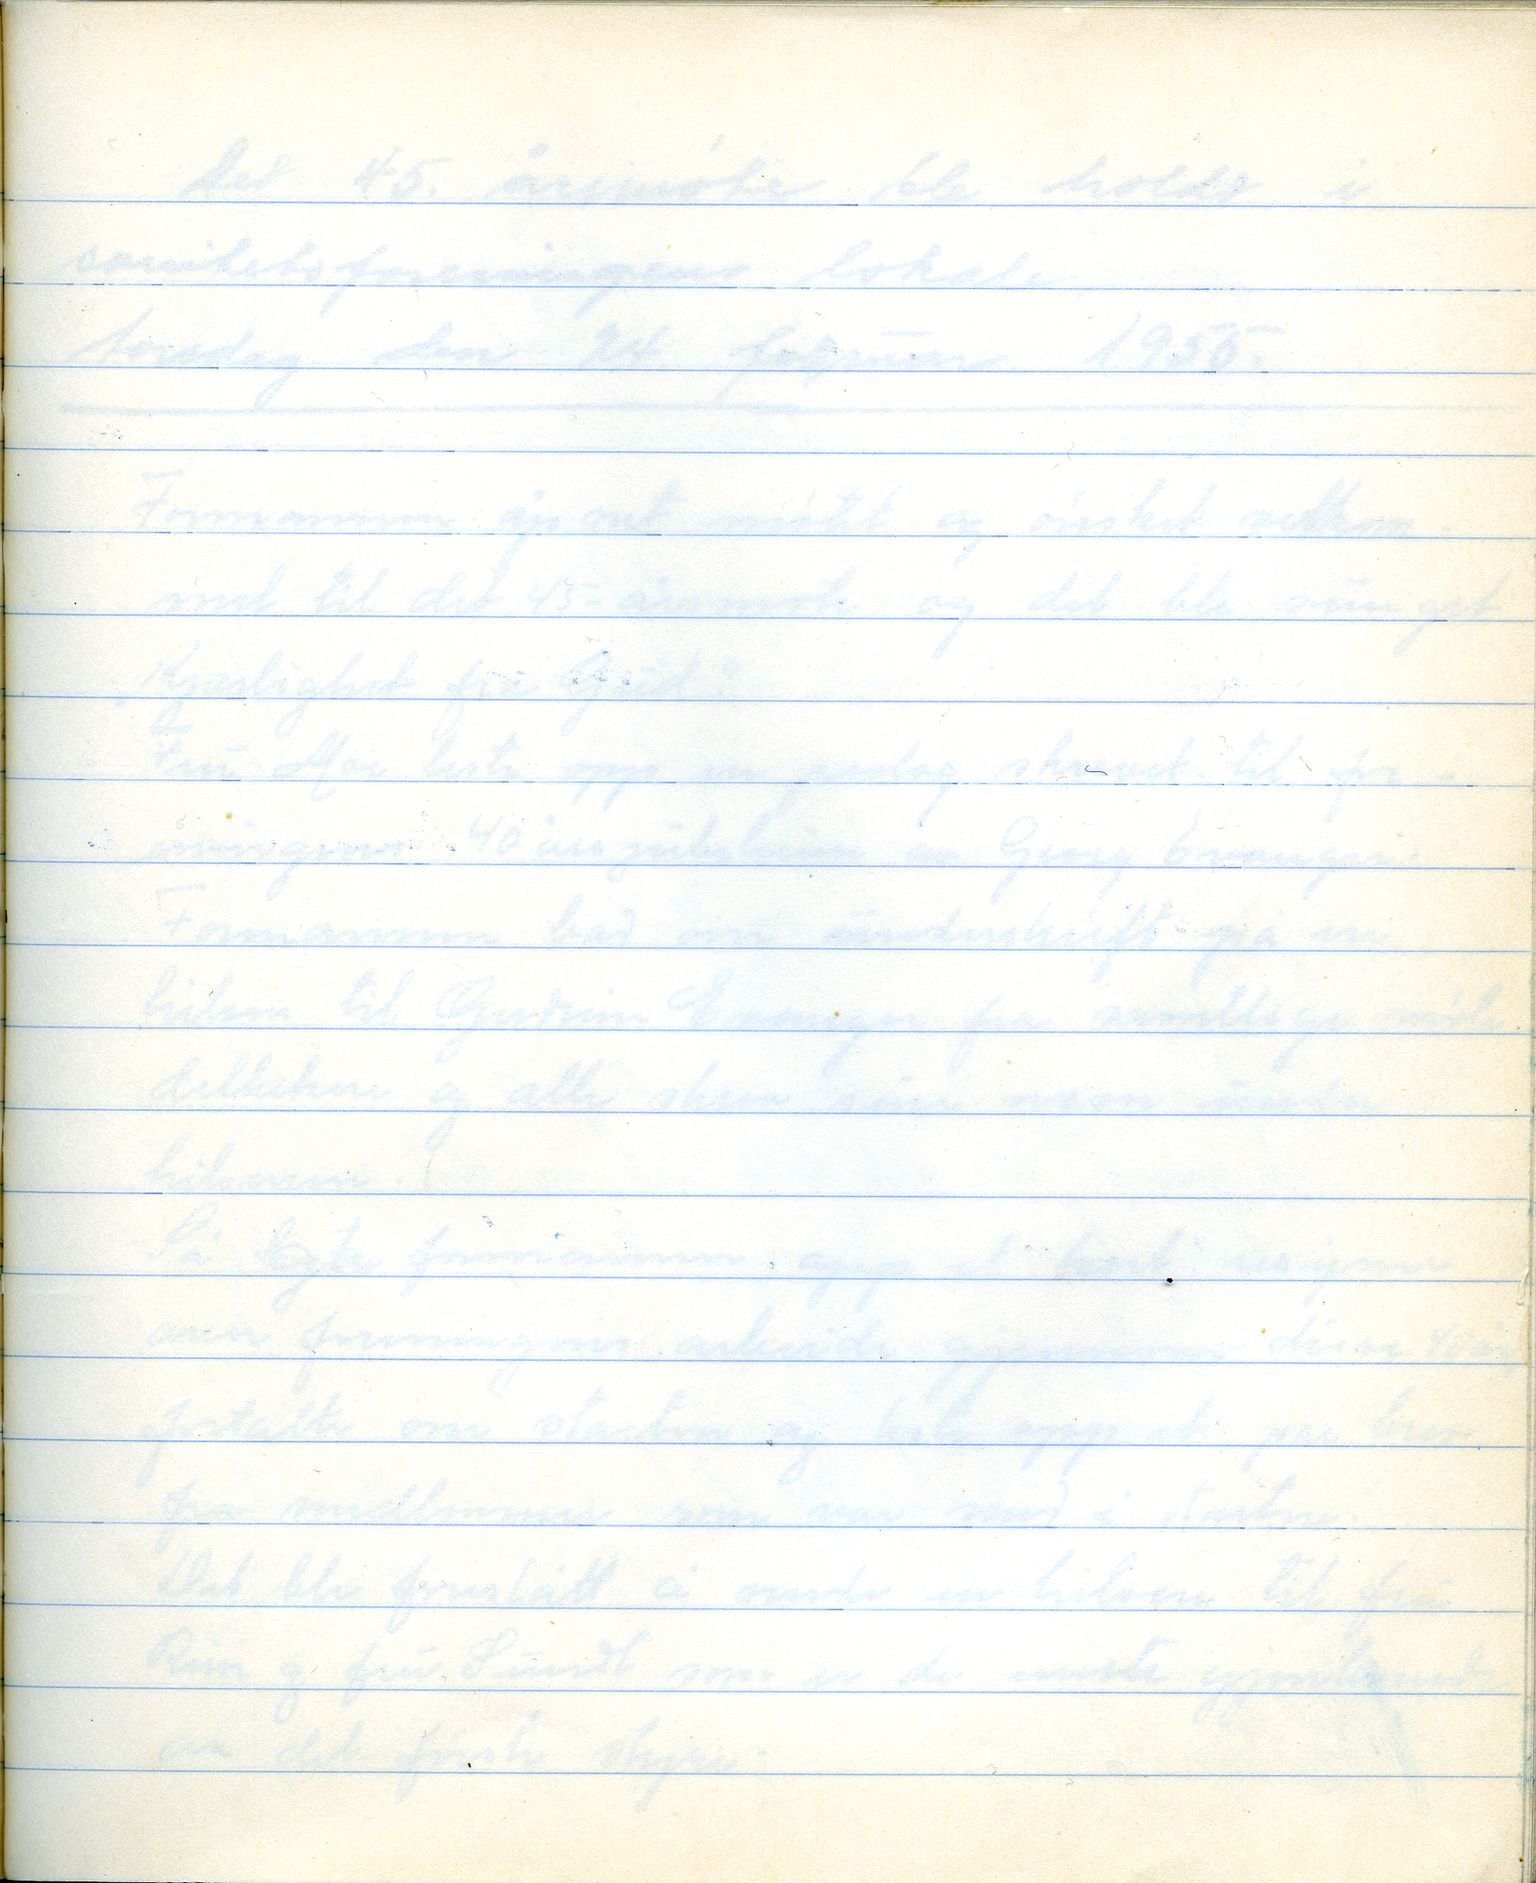 Det 45. årsmøte ble holdt i
sanitetsforeningens lokale
torsdag den 24 februar 1955.
Formannen øns møtet og ønsket velkom-
met til det 45- årsmøte og det ble sunget
„Kjærlighet fra Gud"
Fru Moe leste opp en prolog skrevet til for-
eningens 40 års jubileum av Georg Evanger.
Formannen bad om underskrift på en
hilsen til Gudrun Evanger fra samtlige møte
deltakere og alle skrev sine navn under
hilsenen.
Så leste formannen opp et kort resyme
over foreningens arbeide gjennem disse 45 år,
fortalte om starten og leste opp et par brev
fra medlemmer som var med i starten.
Det ble foreslått å sende en hilsen til fru
Rim og fru Sundt som er de eneste gjenlevende
av det første styre.